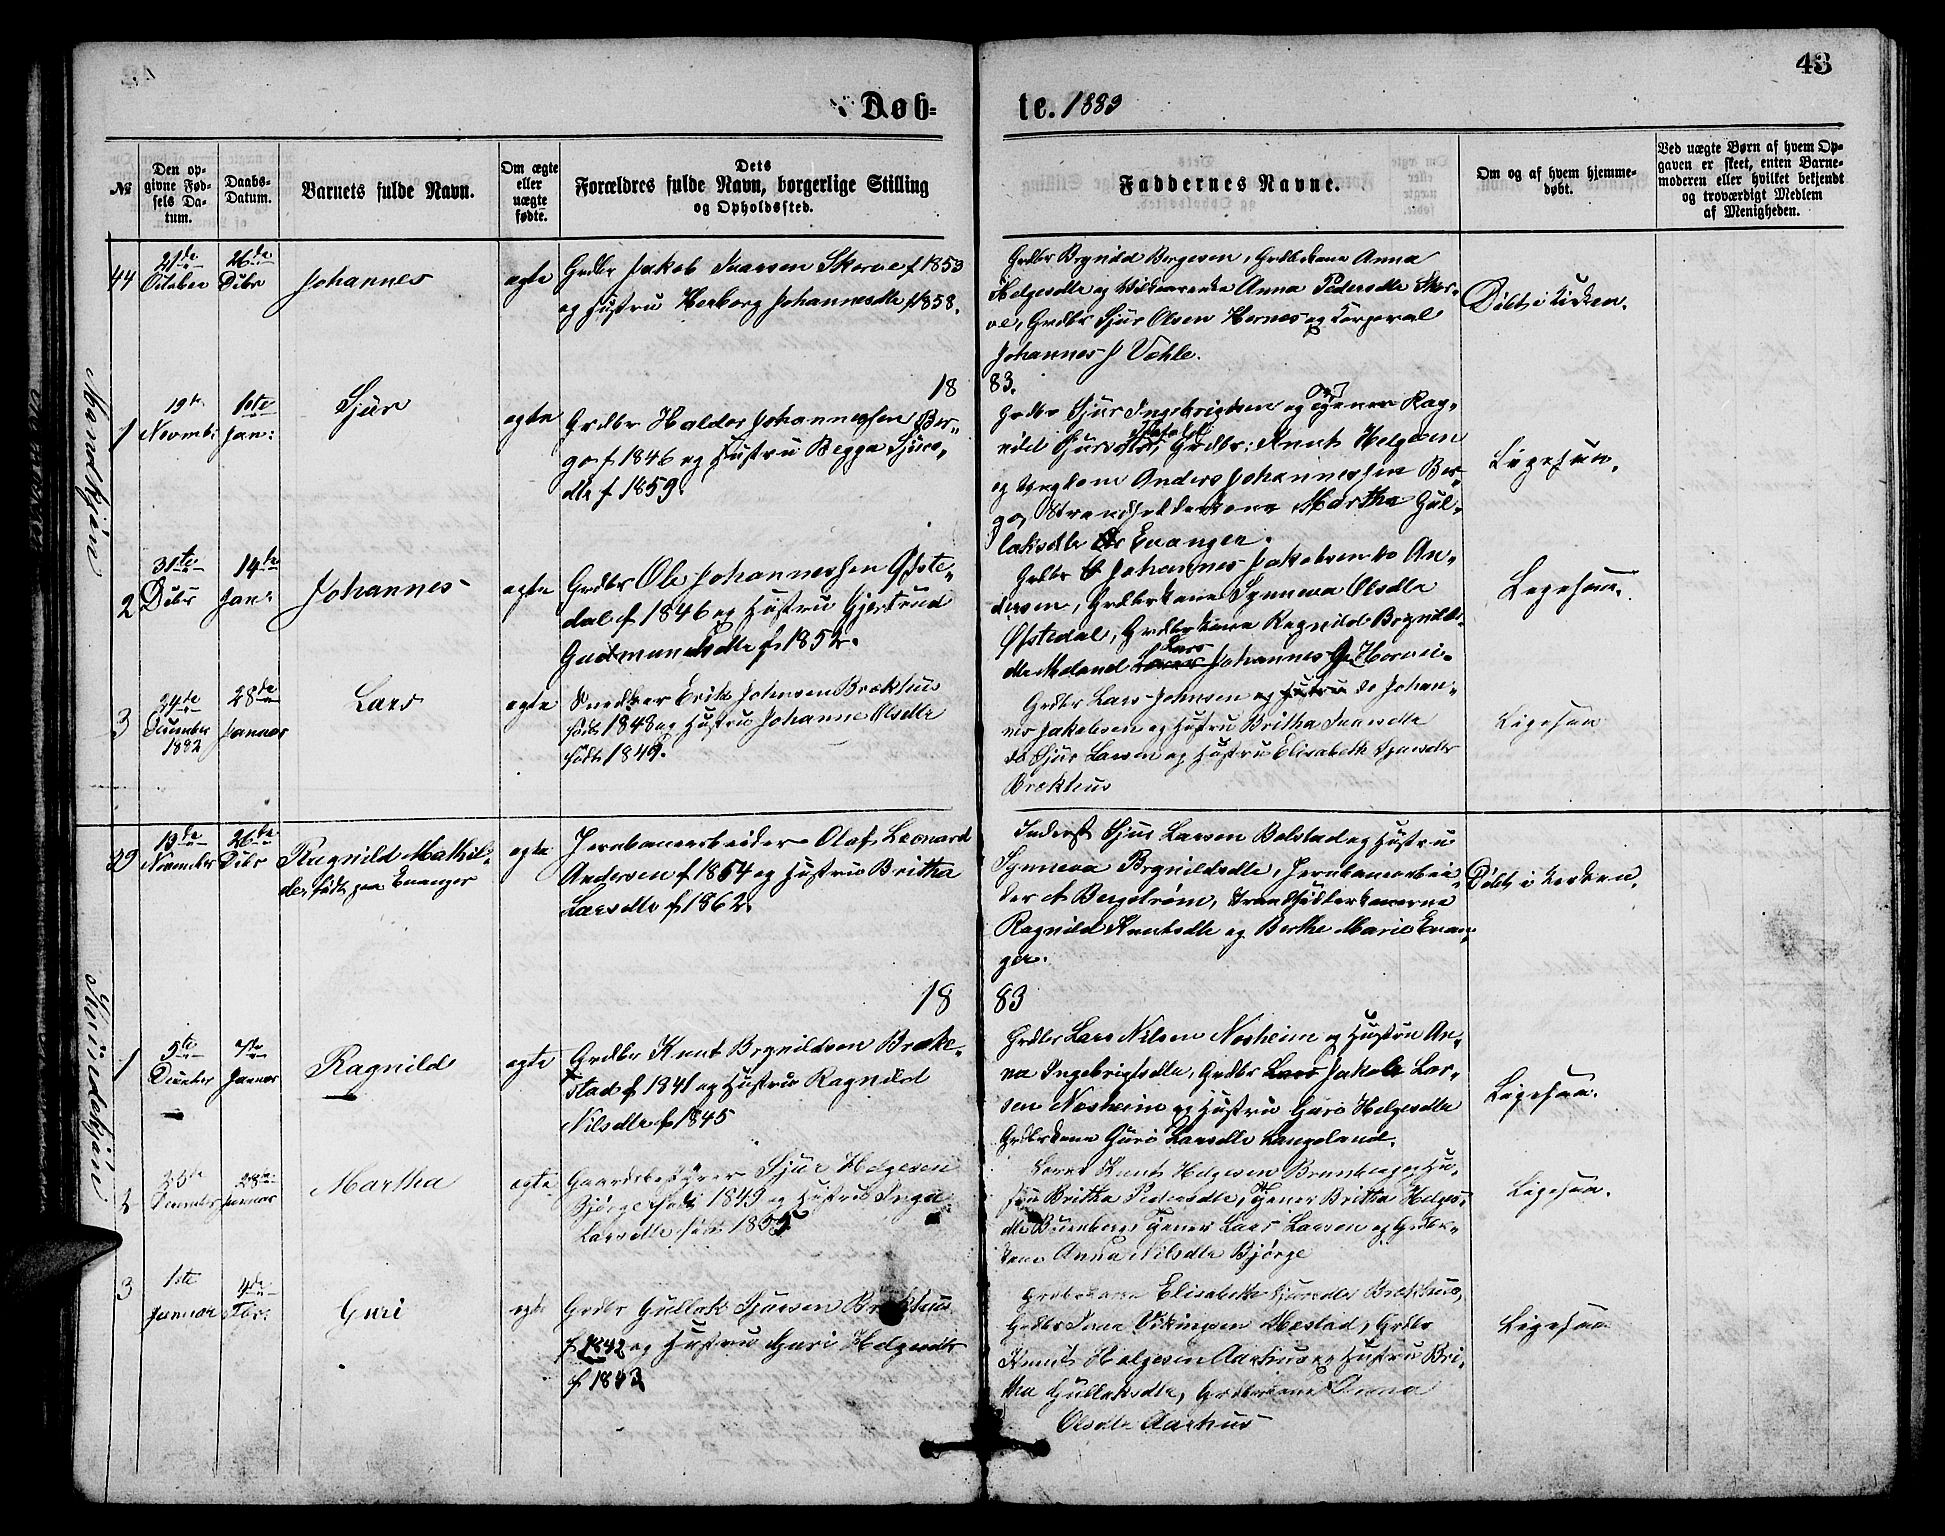 43
Døb-
te. 1883
№
Den op-
givne Fød-
sels Da-
tum.
Daabs-
Datum.
Barnets fulde Navn.
Om ægte
eller
uægte
fødte.
Dets
Forældres fulde Navn, borgerlige Stilling
og Opholdssted.
Faddernes Navne.
Om og af hvem hjemme-
døbt.
Ved uægte Børn af hvem Op-
gaven er skeet, enten Barne-
moderen eller hvilket bekjendt
og troværdigt Medlem
af Menigheden.
Mandkjøn
44
21de
October
26de
Dcbr
Johannes
egte
Grdbr Jakob Ivarsen Skorve f 1853
og Hustru Herborg Johannesdtr f 1858.
Grdbr Brynild Bergesen, Grdbrkone Anna
Helgesdtr og Anna Pedersdtr Skor-
ve, Grdbr Sjur Olsen Hernes og Korporal
Johannes J Væhle.
Døbt i Kirken.
18
83.
1
19de
Novmb:
1ste
Jan:
Sjur
egte
Grdbr Haldor Johannessen Ber-
ge f 1846 og Hustru Begga Sjurs-
dtr f 1859.
Grdbr Sjur Ingebrigtsen og Pigen Rag-
nild Sjursdtr, Grdbr: Knut Helgesen
og Ungkone Anders Johannessen Ber-
ge, Strandsidderkone Martha Gul-
laksdtr Evanger.
Ligesaa.
2
31te
Dcbr
14de
Jan:
Johannes
egte
Grdbr Ole Johannessen Øfste-
dal f 1846 og Hustru Gjertrud
Gudmundsdtr f 1852.
Grdbr Johannes Jakobsen do An-
dersen, Grdbrkone Synneva Olsdtr
Øfstedal, Grdbrkone Ragnild Brynilds-
dtr Meland Lars Johannes Horvei.
Ligesaa.
3
24de
December
1882
28de
Januar
Lars
egte
Snedker Erik Johnsen Brækhus
født 1848 og Hustru Johanne Olsdtr
født 1849.
Grdbr Lars Johnsen og Hustru do Johan-
nes Jakobsen og Hustru Britha Ivarsdtr
do Sjur Larsen og Hustru Elisabeth Sjursdtr
Brækhus
Ligesaa
Kvindekjøn
29
13de
November
26de
Dcbr
Ragnild Mathil-
de, født paa Evanger
egte
Jernbanearbeider Olaf Leonard
Andersen f 1854 og Hustru Britha
Larsdtr f 1862.
Inderst Sjur Larsen Bolstad og Hustru
Synneva Brynildsdtr, Jernbanearbei-
der A Bergstrøm, Strandsidderkonerne
Ragnild Knutsdtr og Berthe Marie Evan-
ger.
Døbt i Kirken.
18
83
1
5te
December
7de
Januar
Ragnild
egte
Grdbr Knut Brynildsen Brake-
stad f 1841 og Hustru Ragnild
Nilsdtr f 1845
Grdbr Lars Nilsen Nosheim og Hustru An-
na Ingebrigtsdtr, Grdbr Lars Jakob Lar-
sen Nosheim og Hustru Guro Helgesdtr
Grdbrkone Guro Larsdtr Langeland.
Ligesaa.
2
25de
December
28de
Januar
Martha
egte
Gaardsbestyrer Sjur Helgesen
Bjørge født 1849 og Hustru Inga
Larsdtr født 1855
Knut Helgesen Brunborg og Hu-
stru Britha Pedersdtr, Pigen Britha Helges-
dtr Brunborg Lars Larsen og Grdbr-
kone Anna Nilsdtr Bjørge
Ligesaa.
3
1ste
Januar
4de
Guri
egte
Grdbr Gullak Sjursen Brækhus
f 1842 og Hustru Guri Helgesdtr
f 1843
Grdbrkone Elisabeth Sjursdtr Brækhus,
Grdbr Ivar Vikingsen Mestad, Grdbr
Knut Helgesen Aarhus og Hustru Bri-
tha Gullaksdtr, Grdbrkone Anna
Olsdtr Aarhus
Ligesaa